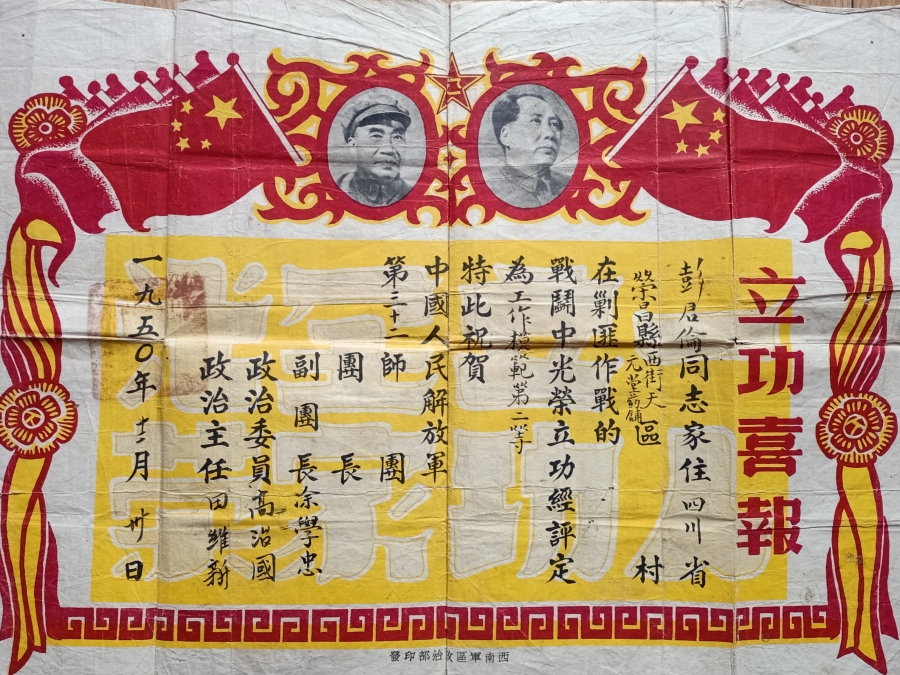 立功喜報
彭君倫同志家住四川省
榮昌縣西街天元堂葯鋪區 村
在剿匪作戰的
戰鬪中光榮立功經評定
為工作模範第二等
特此祝賀
中國人民解放軍
第三十二師 團
團 長
副團長 學忠
政治委員高治國
政治主任田維新
一九五〇年十二月卅日
西南軍區政治部印發